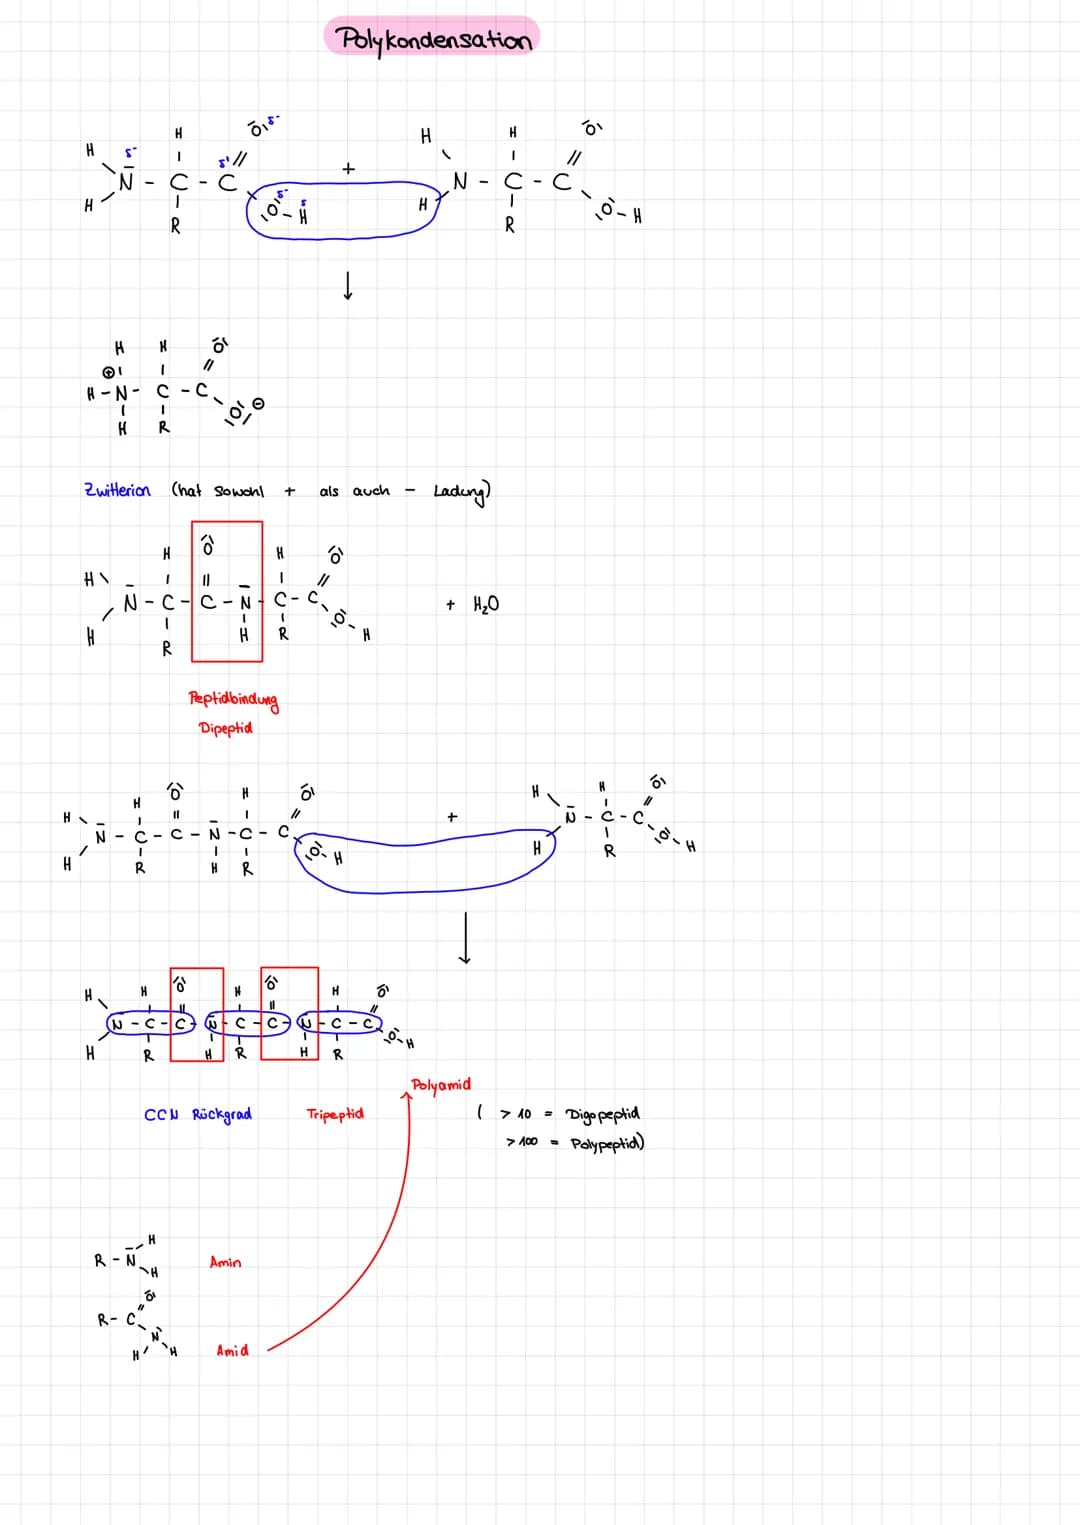 Polykondensation
H H ō| δ- H H ō|
H δ- δ+ // + \ | //
\ N̄ - C - C N - C - C
H / | \ |O̲| δ- - H δ H / | \ |O̲ - H
R R
↓
H H ō|
⊕| | //
H - N - C - C
| | \ |O̲| ⊖
H R
Zwitterion (hat sowohl + als auch - Ladung)
H |O| H ō|
H \ | || | //
N̄ - C - C - N̄ - C - C + H₂O
H / | | | \ O̲ - H
R H R
Peptidbindung
Dipeptid
H |O| H ō| H H ō|
H \ | || | // + \ | //
N̄ - C - C - N̄ - C - C N̄ - C - C
H / | | | \ |O̲ - H H / | \ O̲ - H
R H R R
↓
H H |O| H |O| H ō|
\ | || | || | //
N̄ - C - C - N̄ - C - C - N̄ - C - C
H / | | | | | \ O̲ - H
R H R H R
Polyamid
CCN Rückgrad Tripeptid ( > 10 = Oligopeptid
> 100 = Polypeptid)
H
R - N̄ Amin
H
ō|
R - C
N
H H Amid